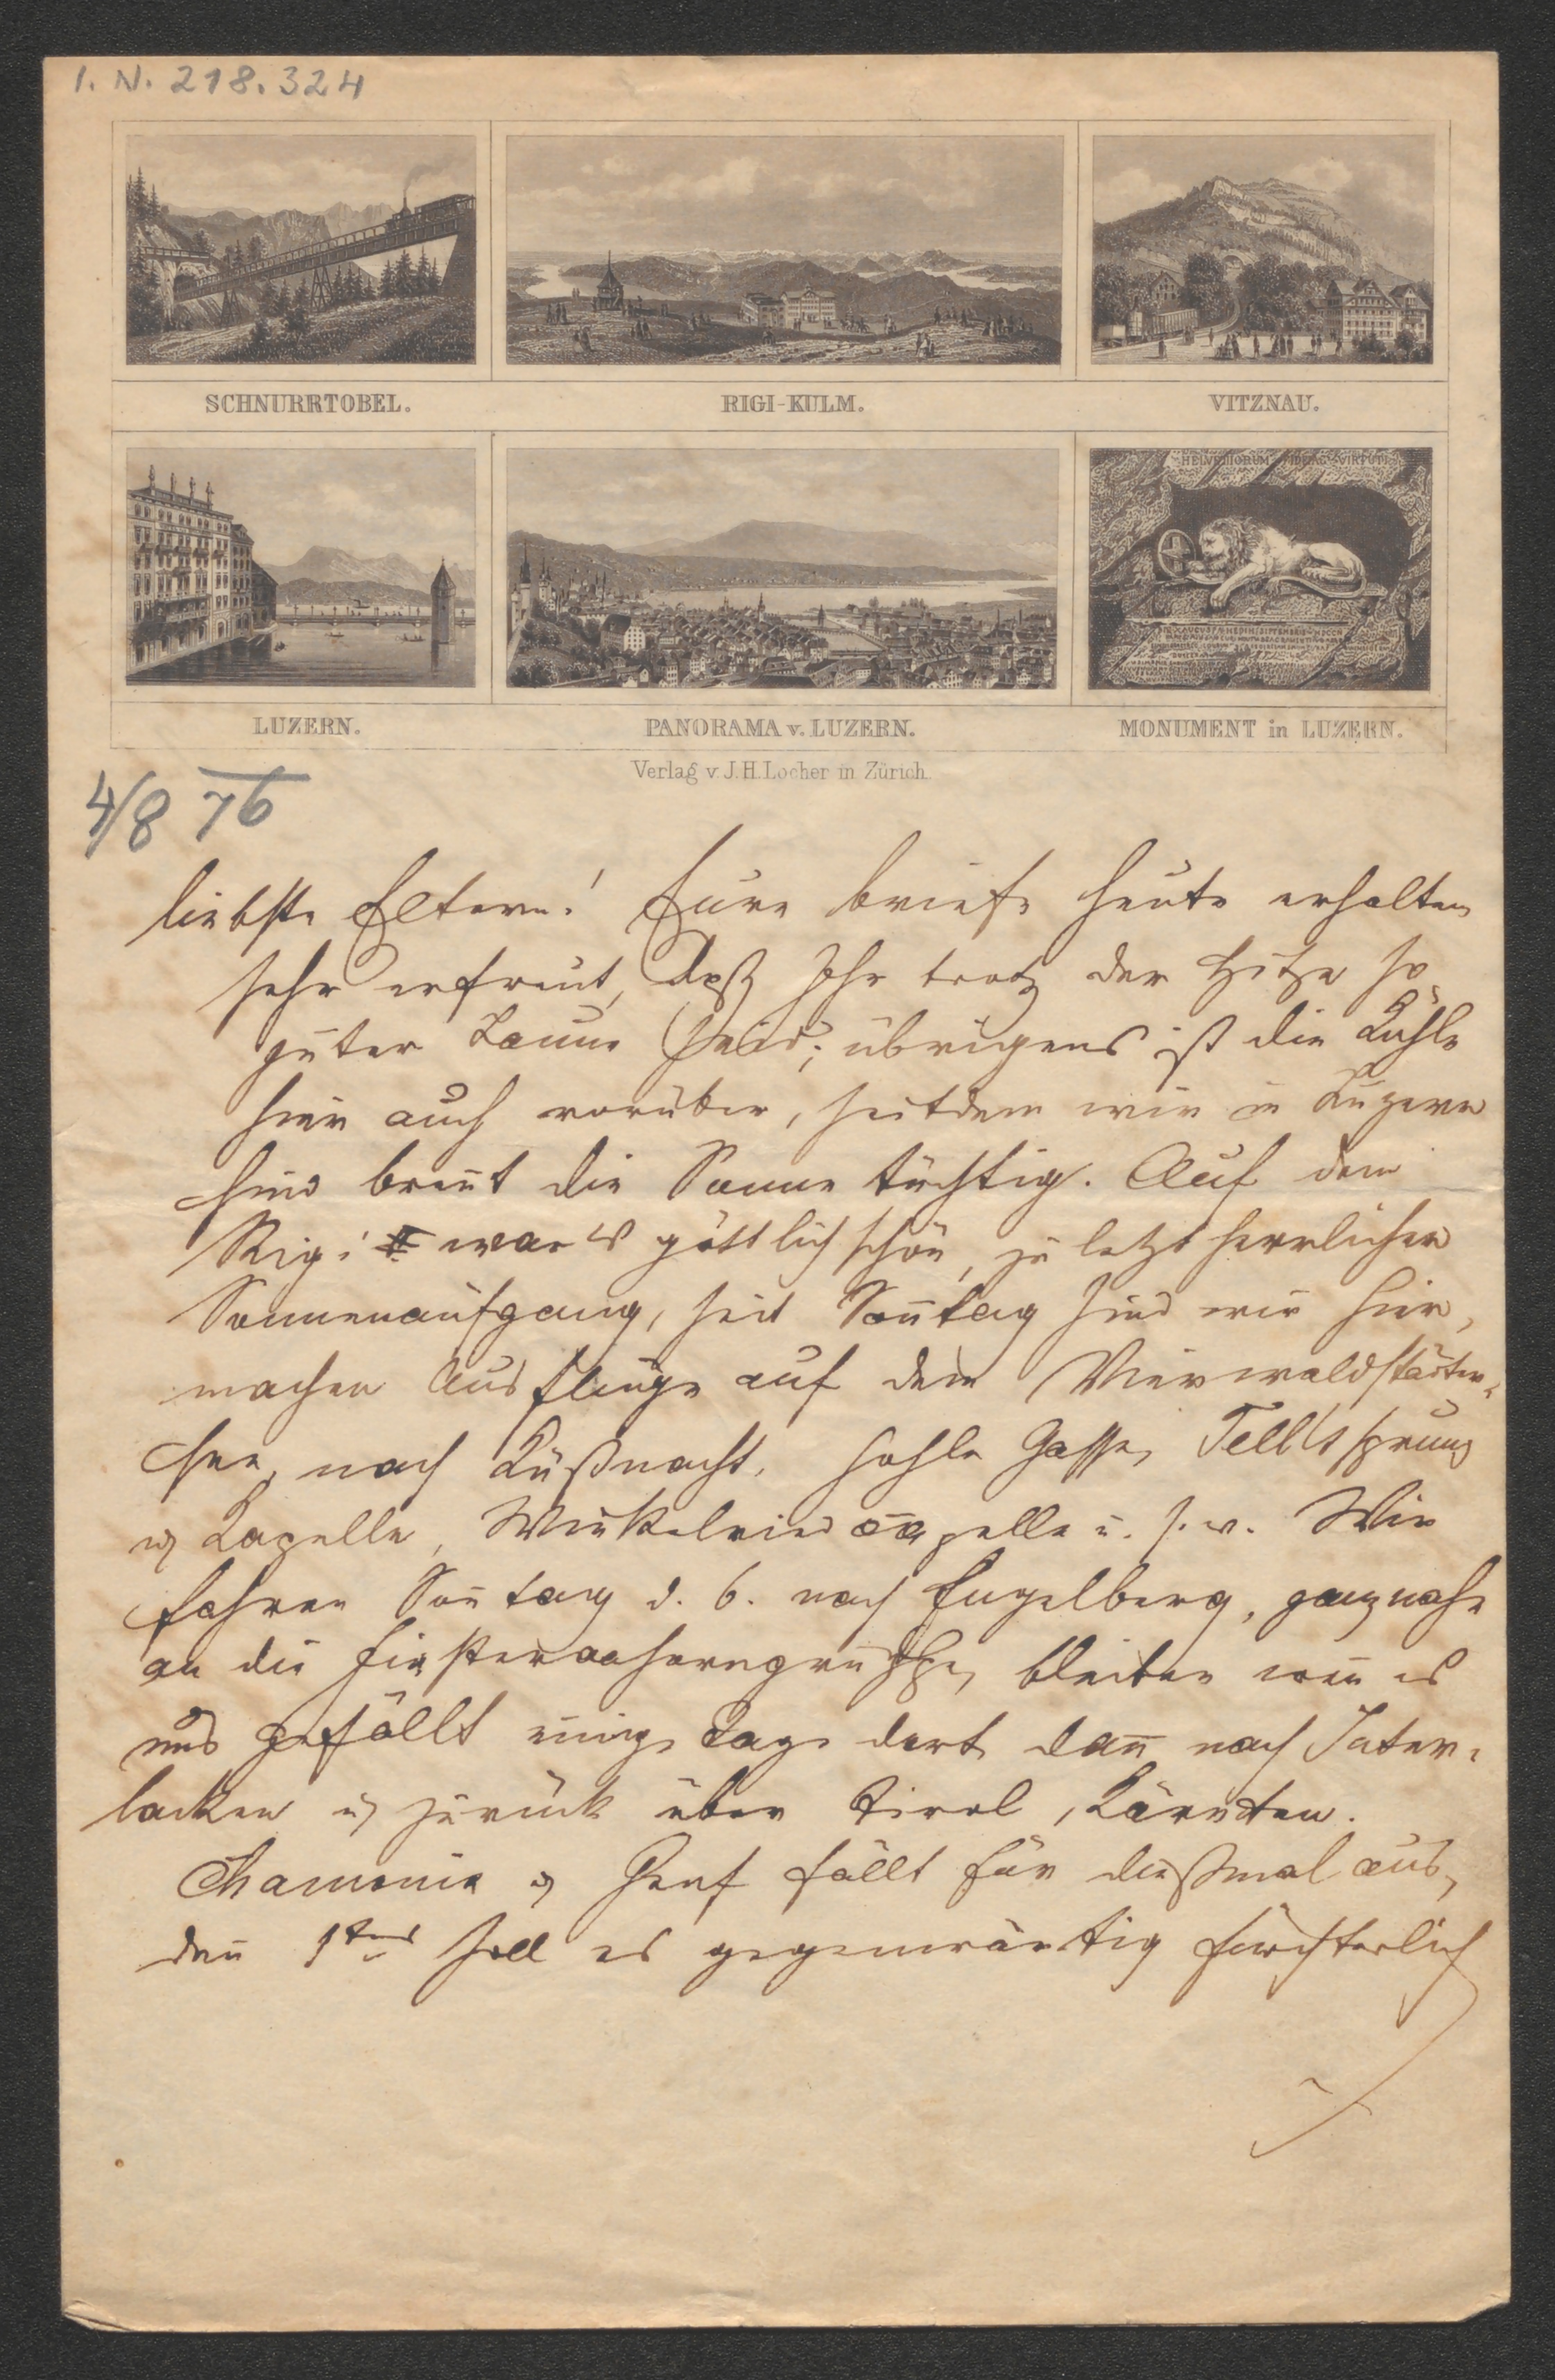 I. N. 218.324
SCHNURRTOBEL.
RIGI-KULM.
VITZNAU.
HELVETIORUM FIDEI AC VIRTUTI
LUZERN.
PANORAMA v. LUZERN.
MONUMENT in LUZERN.
Verlag v. J. H. Locher in Zürich.
4/8 76
liebste Eltern! Eure briefe heute erhalten
sehr erfreut, daß Ihr trotz der Hitze so
guter Laune seid; übrigens ist die Kühle
hier auch vorüber, seitdem wir in Luzern
sind brent die Sonne tüchtig. Auf dem
Rigi war es göttlich schön, zu letzt herrlichen
Sonnenaufgang, seit Sontag sind wir hier,
machen Ausflüge auf dem Vierwaldstätter-
see, nach Küßnacht, hohle Gasse, Tell's sprung
u Kapelle, Winkelried capelle u. s. w. Wir
fahren Sontag d. 6. nach Engelberg, ganz nahe
an die Finsteraarhorngruppe, bleiben wen es
uns gefällt einige Tage dort, dan nach Inter-
lacken u zurück über Tirol, Kärnten.
Chamonix u Genf fällt für dießmal aus,
den 1tens soll es gegenwärtig fürchterlich